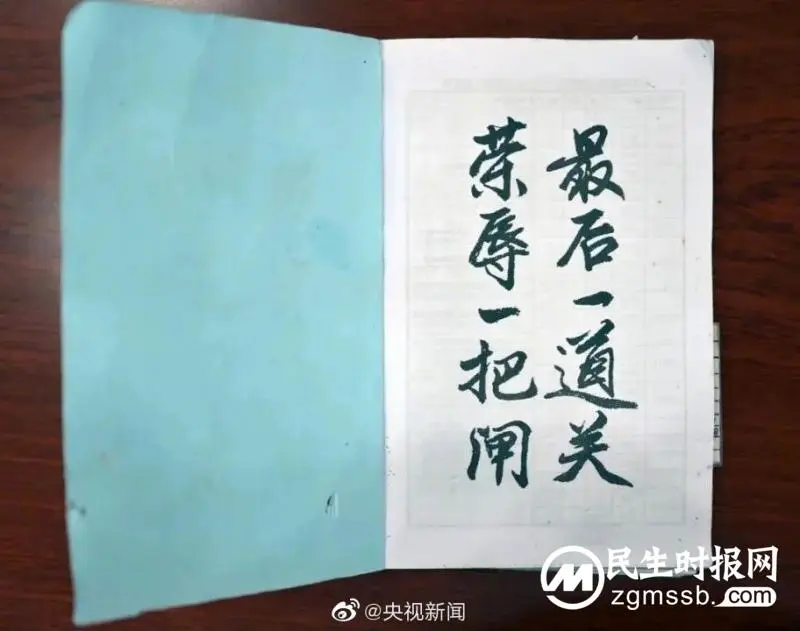 最后一道关
荣辱一把闸
@央视新闻
民生时报网
zgmssb.com